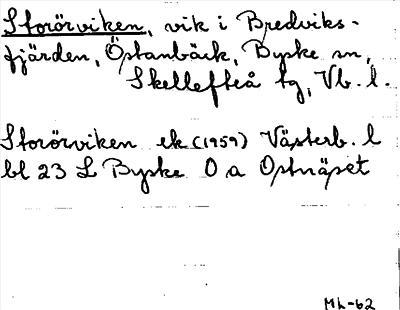 Storörviken, vik i Bredviks-
fjärden, Östanbäck, Byske sn,
Skellefteå tg, Vb. l.
Storörviken ek (1959) Västerb. l
bl 23 L Byske O a Ostnäset
ML-62